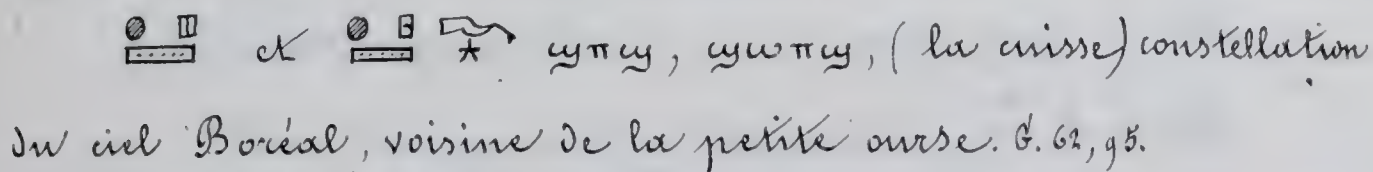 𓐍𓊪𓈙 et 𓐍𓊪𓈙𓄗𓇼 ϣⲡϣ, ϣⲱⲡϣ, (la cuisse) constellation
du ciel Boréal, voisine de la petite ourse. G. 62, 95.